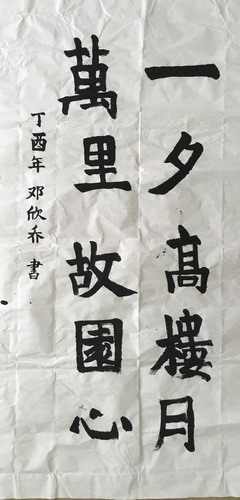 一夕高樓月
萬里故園心
丁酉年 邓欣乔 書